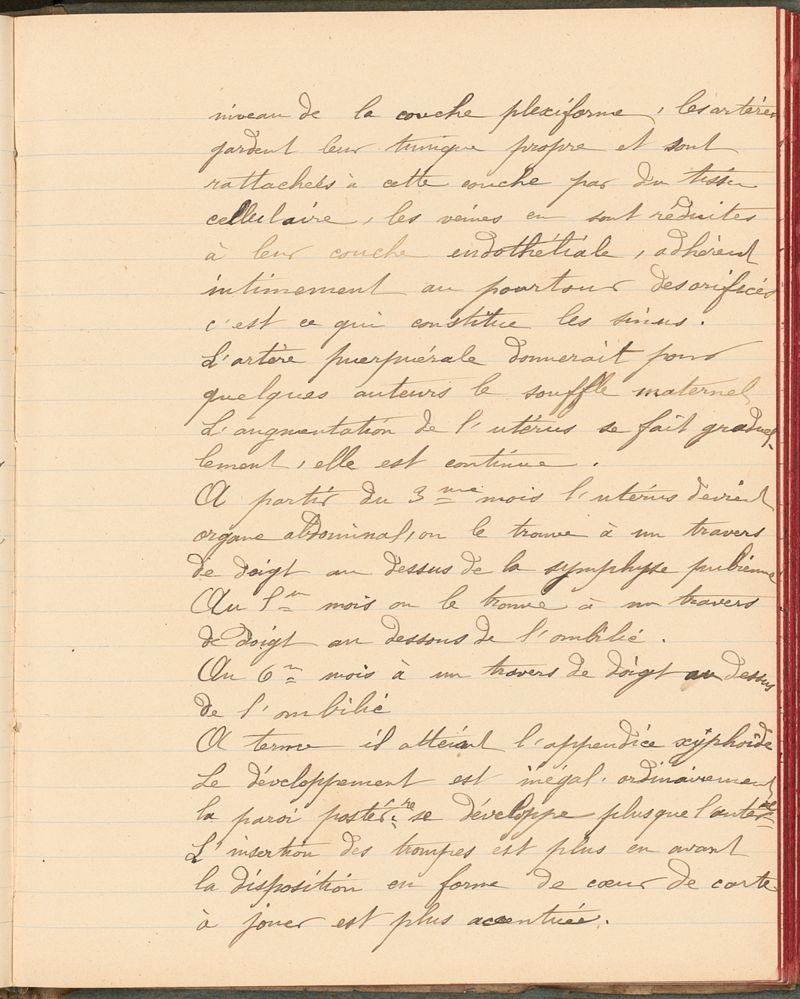 niveau de la couche plexiforme, les artères
gardent leur tunique propre et sont
rattachées à cette couche par du tissu
cellulaire, les veines en sont réduites
à leur couche endothétiale, adhèrent
intimement au pourtour des orifices
c'est ce qui constitue les sinus.
L'artère puerpuérale donnerait pour
quelques auteurs le souffle maternel
L'augmentation de l'utérus se fait graduel-
lement, elle est continue.
A partir du 3me mois l'utérus devient
organe abdominal, on le trouve à un travers
de doigt au dessus de la symphyse pubienne
Au 5m mois on le trouve à un travers
de doigt au dessous de l'ombilic.
Au 6m mois à un travers de doigt au dessus
de l'ombilic
A terme il atteint l'appendice xÿphoïde
Le développement est inégal. ordinairement
la paroi postér.re se développe plus que l'antér.re
L'insertion des trompes est plus en avant
la disposition en forme de cœur de carte
à jouer est plus accentuée.